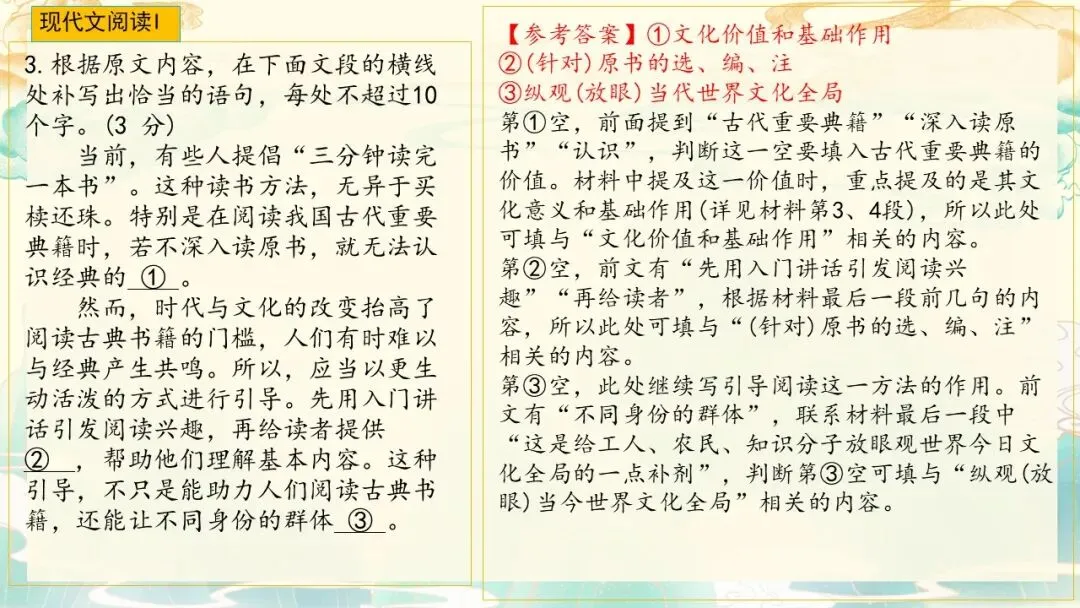 现代文阅读I
3.根据原文内容，在下面文段的横线
处补写出恰当的语句，每处不超过10
个字。(3 分)
当前，有些人提倡“三分钟读完
一本书”。这种读书方法，无异于买
椟还珠。特别是在阅读我国古代重要
典籍时，若不深入读原书，就无法认
识经典的 ① 。
然而，时代与文化的改变抬高了
阅读古典书籍的门槛，人们有时难以
与经典产生共鸣。所以，应当以更生
动活泼的方式进行引导。先用入门讲
话引发阅读兴趣，再给读者提供
② ，帮助他们理解基本内容。这种
引导，不只是能助力人们阅读古典书
籍，还能让不同身份的群体 ③ 。
【参考答案】①文化价值和基础作用
②(针对)原书的选、编、注
③纵观(放眼)当代世界文化全局
第①空，前面提到“古代重要典籍”“深入读原
书”“认识”，判断这一空要填入古代重要典籍的
价值。材料中提及这一价值时，重点提及的是其文
化意义和基础作用(详见材料第3、4段)，所以此处
可填与“文化价值和基础作用”相关的内容。
第②空，前文有“先用入门讲话引发阅读兴
趣”“再给读者”，根据材料最后一段前几句的内
容，所以此处可填与“(针对)原书的选、编、注”
相关的内容。
第③空，此处继续写引导阅读这一方法的作用。前
文有“不同身份的群体”，联系材料最后一段中
“这是给工人、农民、知识分子放眼观世界今日文
化全局的一点补剂”，判断第③空可填与“纵观(放
眼)当今世界文化全局”相关的内容。